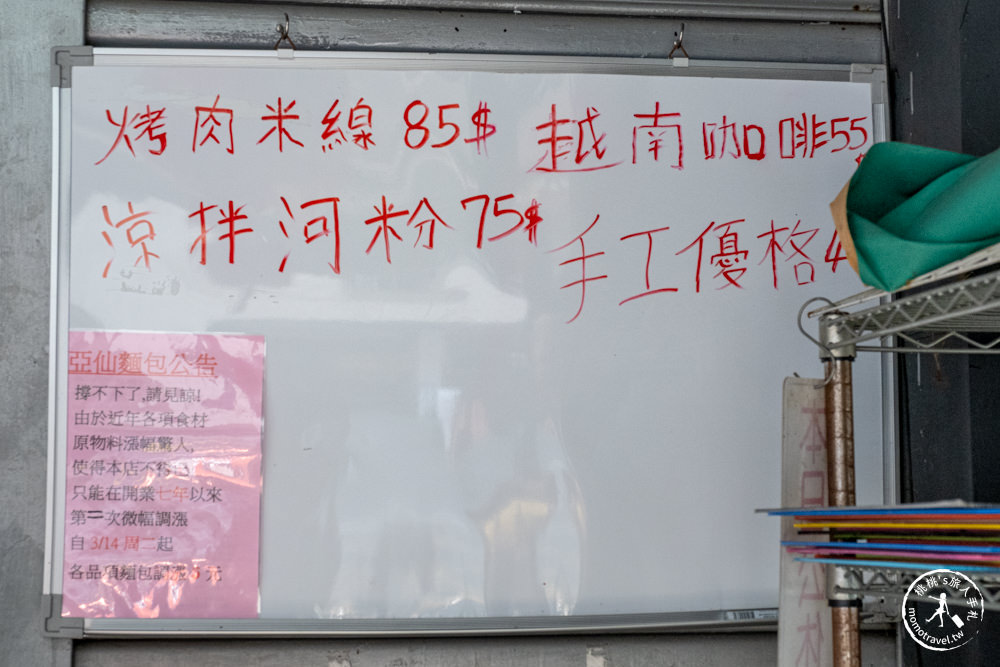 烤肉米線 85$
涼拌河粉 75$
越南咖啡 55$
手工優格 4
亞仙麵包公告
撐不下了,請見諒!
由於近年各項食材
原物料漲幅驚人,
使得本店不得已
只能在開業七年以來
第二次微幅調漲
自 3/14 周二起
各品項麵包調漲 5 元
本日公休
桃桃's旅人手札
momotravel.tw